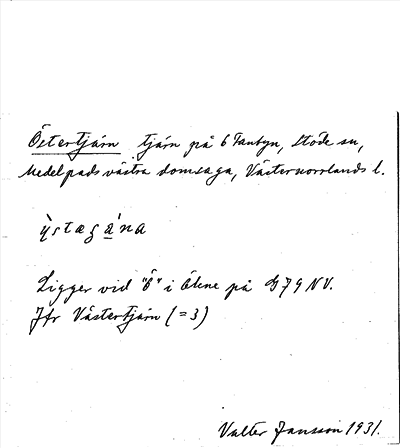 Östertjärn tjärn på 6 Tantyn, Stöde sn,
Medelpads västra domsaga, Västernorrlands l.
Ligger vid "Ö" i Ölene på G 79 NV.
Jfr Västertjärn (=3)
Valter Jansson 1931.